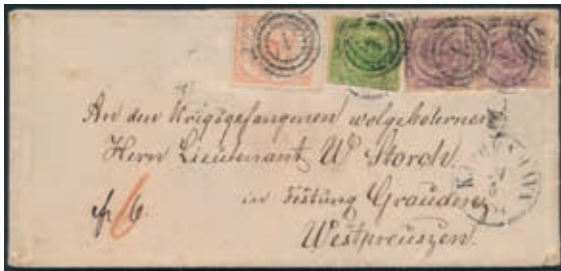 An den Krigsgefangenen wolgebohrnen
Herrn Lieutenant W Storch.
in Festung Graudenz
Westpreuszen.
fr 6.
6
1